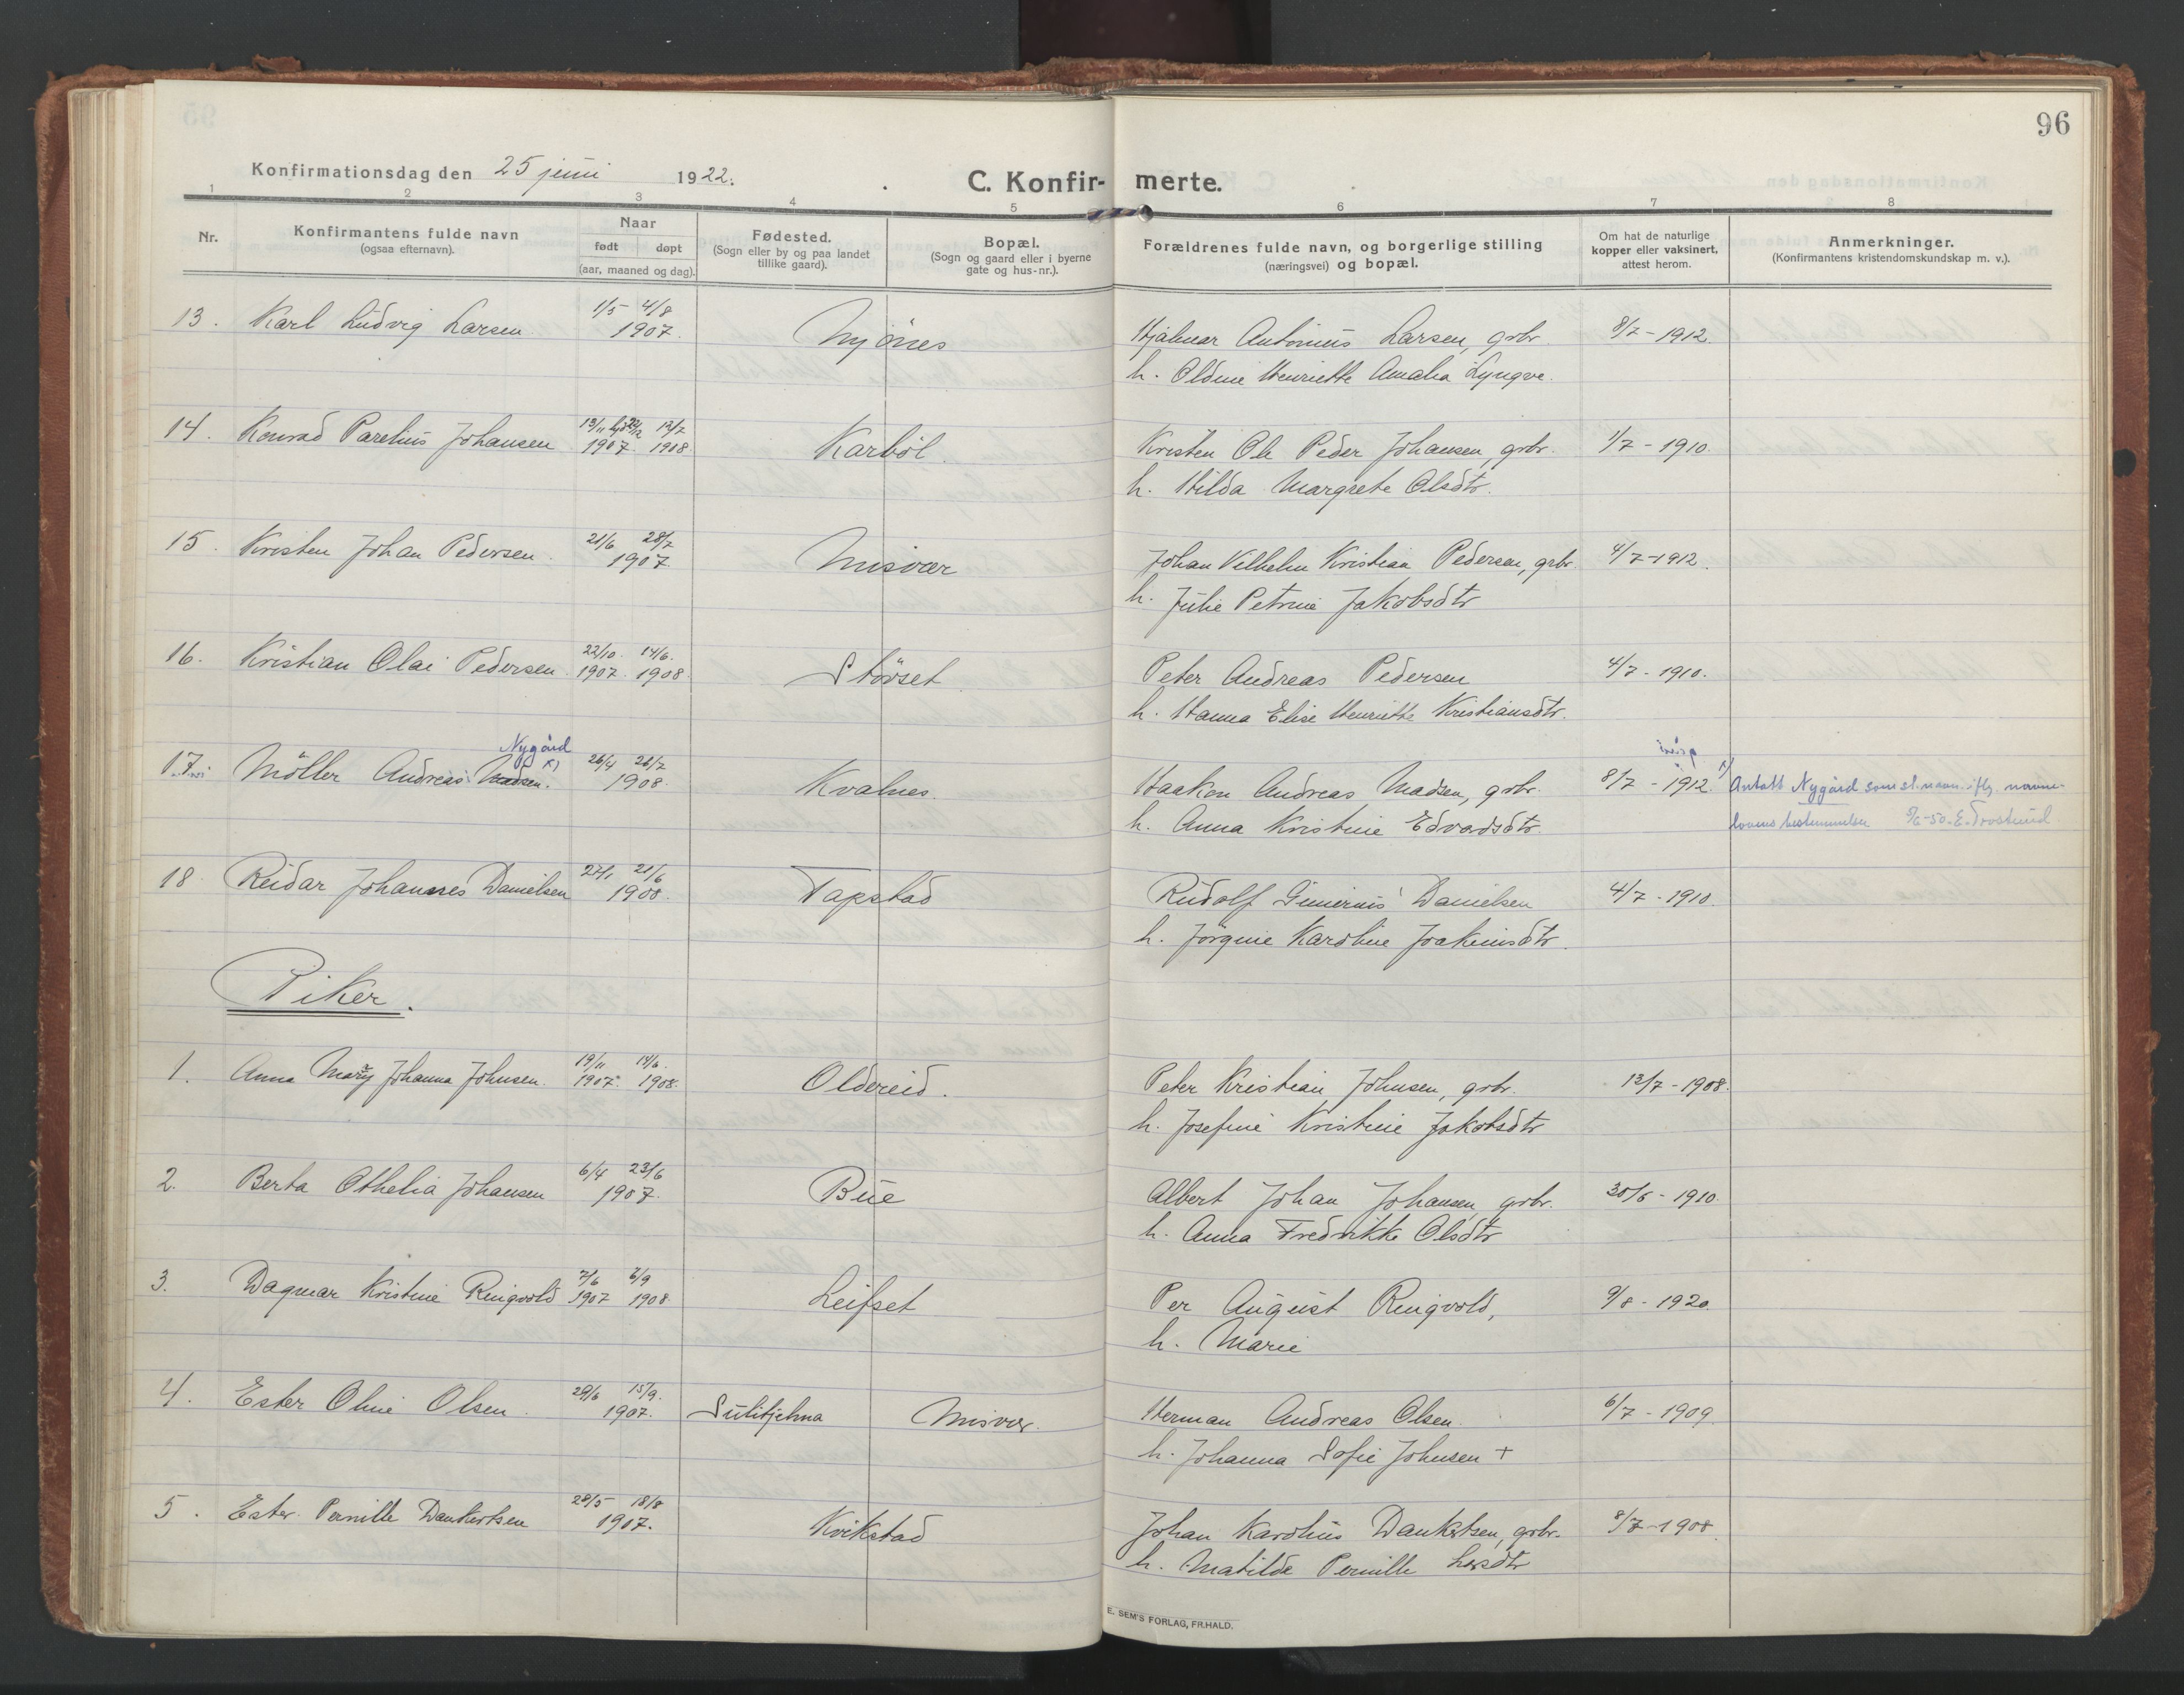 96
Konfirmationsdag den 25 juni 1922.
C. Konfirmerte.
1 2 3 4 5 6 7 8
Nr.
Konfirmantens fulde navn
(ogsaa efternavn).
Naar
født døpt
(aar, maaned og dag).
Fødested.
(Sogn eller by og paa landet
tillike gaard).
Bopæl.
(Sogn og gaard eller i byerne
gate og hus-nr.).
Forældrenes fulde navn, og borgerlige stilling
(næringsvei) og bopæl.
Om hat de naturlige
kopper eller vaksinert,
attest herom.
Anmerkninger.
(Konfirmantens kristendomskundskap m. v.).
1/5 4/8
13. Karl Ludvig Larsen 1907. Nyønes Hjalmar Antonius Larsen, grbr. 8/7 - 1912.
h. Oldine Henriette Amalia Lyngve.
13/11 hjd 22/12 12/7
14. Konrad Parelius Johansen 1907. 1908. Karbøl. Kristen Ole Peder Johansen, grbr. 1/7 - 1910.
h. Hilda Margrete Olsdtr.
21/6 28/7
15. Kristen Johan Pedersen. 1907. Misvær Johan Vilhelm Kristian Pedersen, grbr. 4/7 - 1912.
h. Julie Petrine Jakobsdtr
22/10. 14/6.
16. Kristian Olai Pedersen. 1907. 1908. Størset Peter Andreas Pedersen 4/7 - 1910.
h. Hanna Elise Henriette Kristiansdtr.
Nygård
x) 26/4 26/7
17. Möller Andreas Madsen. 1908. Kvalnes. Haakon Andreas Madsen, grbr. 8/7 - 1912. x) Antatt Nygård som sl.navn iflg. navne-
h. Anna Kristine Edvardsdtr. lovens bestemmelser 5/6-50. E. Trostrud
27/1 21/6
18. Reidar Johannes Danielsen 1908. Tapstad Rudolf Gimerius Danielsen 4/7 - 1910.
h. Jørgine Karoline Joakimsdtr.
Piker.
19/11 14/6.
1. Anna Mary Johanna Johnsen. 1907. 1908. Oldereid. Peter Kristian Johnsen, grbr. 13/7 - 1908.
h. Josefine Kristine Jakobsdtr
6/4 23/6
2. Berta Othelia Johansen 1907. Bue Albert Johan Johansen, grbr. 30/6 - 1910.
h. Anna Fredrikke Olsdtr
7/6 6/9
3. Dagmar Kristine Ringvold 1907 1908. Leifset Per August Ringvold, 9/8 - 1920.
h. Marie
29/6 15/9.
4. Ester Oline Olsen. 1907. Sulitjelma Misvær. Herman Andreas Olsen. 6/7 - 1909.
h. Johanna Sofie Johnsen +
28/5 18/8
5. Ester Pernille Dankertsen 1907. Kvikstad Johan Karolius Dankertsen, grbr. 8/7 - 1908.
h. Matilde Pernille Larsdtr
E. SEM'S FORLAG, FR.HALD.